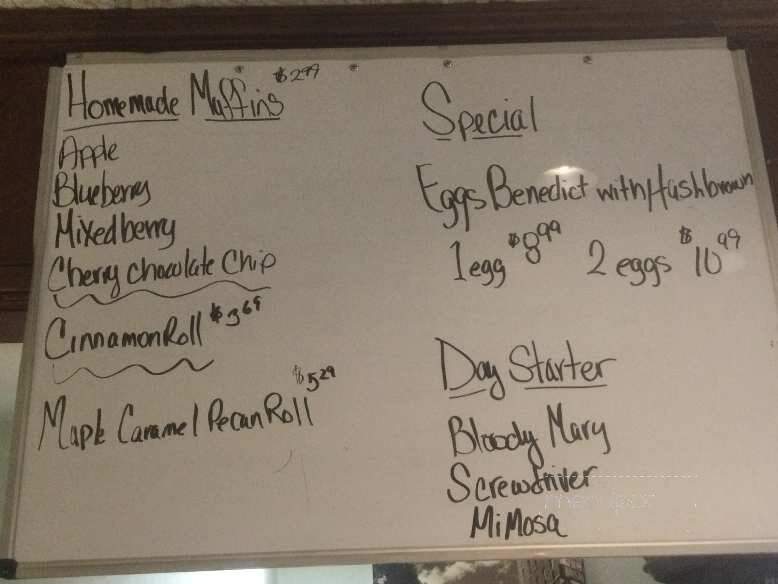 Homemade Muffins $2.99
Apple
Blueberry
Mixedberry
Cherry Chocolate Chip
Cinnamon Roll $3.69
Maple Caramel Pecan Roll $5.29
Special
Eggs Benedict with Hashbrown
1 egg $8.99 2 eggs $10.99
Day Starter
Bloody Mary
Screwdriver
Mimosa